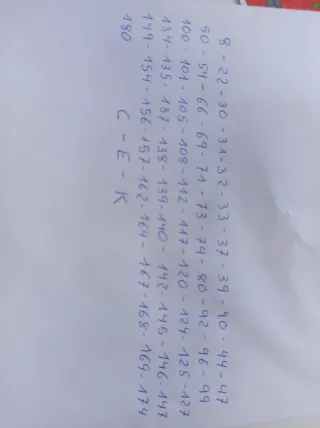 8 - 22 - 30 - 31 - 32 - 33 - 37 - 39 - 40 - 44 - 47
50 - 54 - 66 - 69 - 71 - 73 - 79 - 80 - 92 - 96 - 99
100 - 101 - 105 - 108 - 112 - 117 - 120 - 124 - 125 - 127
134 - 135 - 137 - 138 - 139 - 140 - 142 - 145 - 146 - 147
149 - 154 - 156 - 157 - 162 - 164 - 167 - 168 - 169 - 174
180
C - E - K